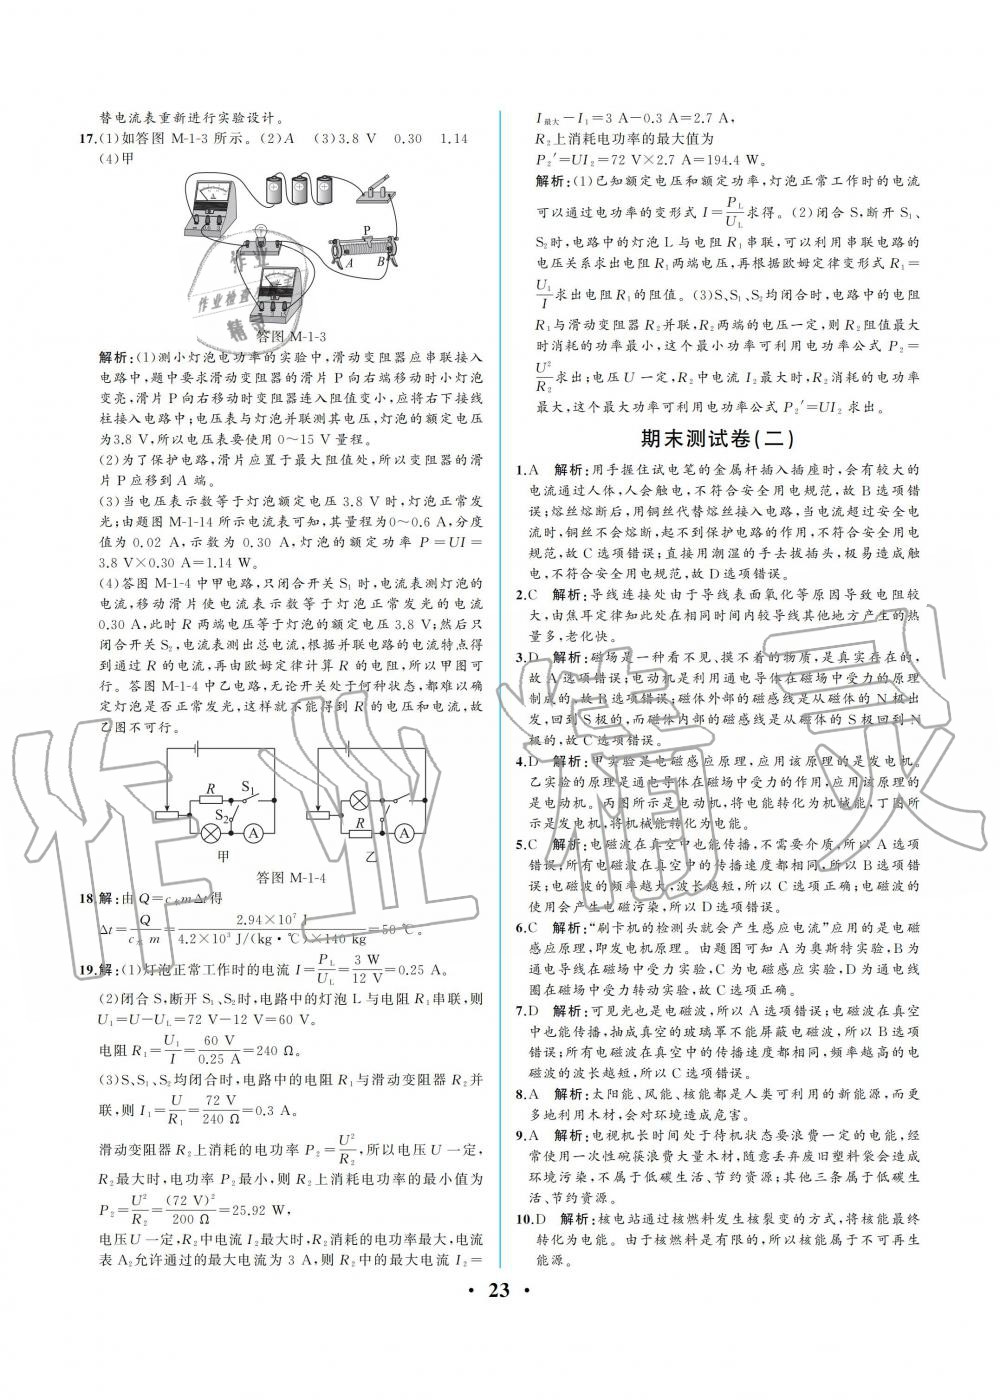 替电流表重新进行实验设计。
17.(1)如答图 M-1-3 所示。(2)A (3)3.8 V 0.30 1.14
(4)甲
P
A B
答图 M-1-3
解析:(1)测小灯泡电功率的实验中,滑动变阻器应串联接入
电路中,题中要求滑动变阻器的滑片 P 向右端移动时小灯泡
变亮,滑片 P 向右移动时变阻器连入阻值变小,应将右下接线
柱接入电路中;电压表与灯泡并联测其电压,灯泡的额定电压
为3.8 V,所以电压表要使用 0～15 V 量程。
(2)为了保护电路,滑片应置于最大阻值处,所以变阻器的滑
片 P 应移到 A 端。
(3)当电压表示数等于灯泡额定电压 3.8 V 时,灯泡正常发
光;由题图 M-1-14 所示电流表可知,其量程为0～0.6 A,分度
值为 0.02 A,示数为 0.30 A,灯泡的额定功率 P=UI=
3.8 V×0.30 A=1.14 W。
(4)答图 M-1-4 中甲电路,只闭合开关 S₁ 时,电流表测灯泡的
电流,移动滑片使电流表示数等于灯泡正常发光的电流
0.30 A,此时 R 两端电压等于灯泡的额定电压 3.8 V;然后只
闭合开关 S₂,电流表测出总电流,根据并联电路的电流特点得
到通过 R 的电流,再由欧姆定律计算 R 的电阻,所以甲图可
行。答图 M-1-4 中乙电路,无论开关处于何种状态,都难以确
定灯泡是否正常发光,这样就不能得到 R 的电压和电流,故
乙图不可行。
R S₁
S₂
A
甲
R A
乙
答图 M-1-4
18.解:由 Q=c水mΔt得
Δt=Q/(c水 m)=2.94×10⁷ J/(4.2×10³ J/(kg·℃)×140 kg)=50 ℃。
19.解:(1)灯泡正常工作时的电流 I=P_L/U_L=3 W/12 V=0.25 A。
(2)闭合 S,断开 S₁、S₂时,电路中的灯泡 L 与电阻 R₁串联,则
U₁=U-U_L=72 V-12 V=60 V。
电阻 R₁=U₁/I=60 V/0.25 A=240 Ω。
(3)S、S₁、S₂均闭合时,电路中的电阻 R₁与滑动变阻器 R₂并
联,则 I₁=U/R₁=72 V/240 Ω=0.3 A。
滑动变阻器 R₂上消耗的电功率 P₂=U²/R₂,所以电压 U 一定,
R₂最大时,电功率 P₂最小,则 R₂上消耗电功率的最小值为
P₂=U²/R₂=(72 V)²/200 Ω=25.92 W,
电压U 一定,R₂中电流 I₂最大时,R₂消耗的电功率最大,电流
表 A₂允许通过的最大电流为 3 A,则 R₂中的最大电流 I₂=
I最大-I₁=3 A-0.3 A=2.7 A,
R₂上消耗电功率的最大值为
P₂′=UI₂=72 V×2.7 A=194.4 W。
解析:(1)已知额定电压和额定功率,灯泡正常工作时的电流
可以通过电功率的变形式 I=P_L/U_L求得。(2)闭合 S,断开 S₁、
S₂时,电路中的灯泡 L 与电阻 R₁串联,可以利用串联电路的
电压关系求出电阻 R₁两端电压,再根据欧姆定律变形式 R₁=
U₁/I求出电阻 R₁的阻值。(3)S、S₁、S₂均闭合时,电路中的电阻
R₁与滑动变阻器 R₂并联,R₂两端的电压一定,则 R₂阻值最大
时消耗的功率最小,这个最小功率可利用电功率公式 P₂=
U²/R₂求出;电压 U 一定,R₂中电流 I₂最大时,R₂消耗的电功率
最大,这个最大功率可利用电功率公式 P₂′=UI₂ 求出。
期末测试卷(二)
1.A 解析:用手握住试电笔的金属杆插入插座时,会有较大的
电流通过人体,人会触电,不符合安全用电规范,故 B 选项错
误;熔丝熔断后,用铜丝代替熔丝接入电路,当电流超过安全电
流时,铜丝不会熔断,起不到保护电路的作用,不符合安全用电
规范,故 C 选项错误;直接用潮湿的手去拔插头,极易造成触
电,不符合安全用电规范,故 D 选项错误。
2.C 解析:导线连接处由于导线表面氧化等原因导致电阻较
大,由焦耳定律知此处在相同时间内较导线其他地方产生的热
量多,老化快。
3.D 解析:磁场是一种看不见、摸不着的物质,是真实存在的,
故 A 选项错误;电动机是利用通电导体在磁场中受力的原理
制成的,故 B 选项错误;磁体外部的磁感线是从磁体的 N 极出
发,回到 S 极的,而磁体内部的磁感线是从磁体的 S 极回到 N
极的,故 C 选项错误。
4.D 解析:甲实验是电磁感应原理,应用该原理的是发电机。
乙实验的原理是通电导体在磁场中受力的作用,应用该原理的
是电动机。丙图所示是电动机,将电能转化为机械能,丁图所
示是发电机,将机械能转化为电能。
5.C 解析:电磁波在真空中也能传播,不需要介质,所以 A 选项
错误;所有电磁波在真空中的传播速度都相同,所以 B 选项错
误;电磁波的频率越大,波长越短,所以 C 选项正确;电磁波的
使用会产生电磁污染,所以 D 选项错误。
6.C 解析:“刷卡机的检测头就会产生感应电流”应用的是电磁
感应原理,即发电机原理。由题图可知 A 为奥斯特实验,B 为
通电导线在磁场中受力实验,C 为电磁感应实验,D 为通电线
圈在磁场中受力转动实验,故 C 选项正确。
7.D 解析:可见光也是电磁波,所以 A 选项错误;电磁波在真空
中也能传播,抽成真空的玻璃罩不能屏蔽电磁波,所以 B 选项
错误;所有电磁波在真空中的传播速度都相同,频率越高的电
磁波的波长越短,所以 C 选项错误。
8.A 解析:太阳能、风能、核能都是人类可利用的新能源,而更
多地利用木材,会对环境造成危害。
9.A 解析:电视机长时间处于待机状态要浪费一定的电能,经
常使用一次性碗筷浪费大量木材,随意丢弃废旧塑料袋会造成
环境污染,不属于低碳生活、节约资源;其他三条属于低碳生
活、节约资源。
10.D 解析:核电站通过核燃料发生核裂变的方式,将核能最终
转化为电能。由于核燃料是有限的,所以核能属于不可再生
能源。
• 23 •
作业精灵
作业
作业检查
精灵